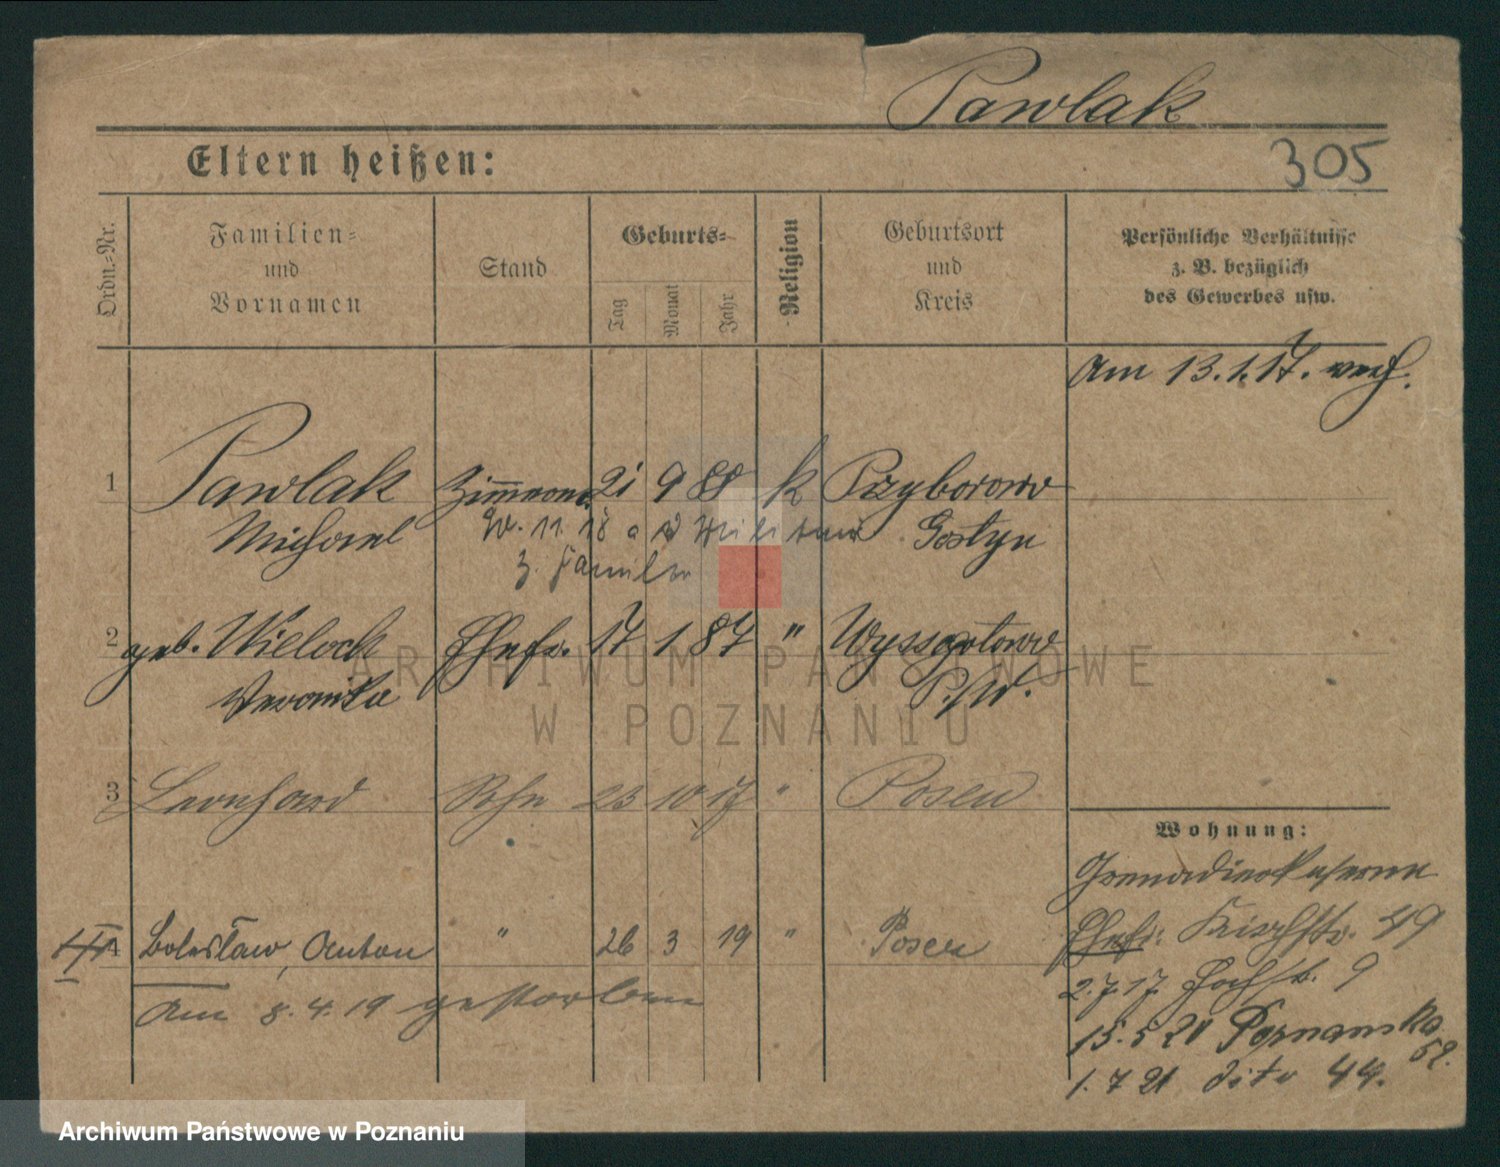 Pawlak
Eltern heißen:
305
Ordn.-Nr.
Familien-
und
Vornamen
Stand
Geburts-
Tag
Monat
Jahr
Religion
Geburtsort
und
Kreis
Persönliche Verhältnisse
z. B. bezüglich
des Gewerbes usw.
Am 13.1.17. verh.
1 Pawlak Zimmerm. 21 9 88 k Przyborowo
Michael Gostyn
11. 18 a d Militär
z. Familie
2 geb. Wieloch Ehefr. 17 1 87 "
Veronika P./W.
3 Leonhard Sohn 23 10 17 " Posen
Wohnung:
Grenadierkaserne
4 Bolesław, Anton " 26 3 19 " Posen
Am 8.4.19 gestorben
Ehefr. 49
2.7.17. 9
15.5 20 Poznanska
52.
1.7 21 dito 44.
ARCHIWUM PAŃSTWOWE
W POZNANIU
Archiwum Państwowe w Poznaniu